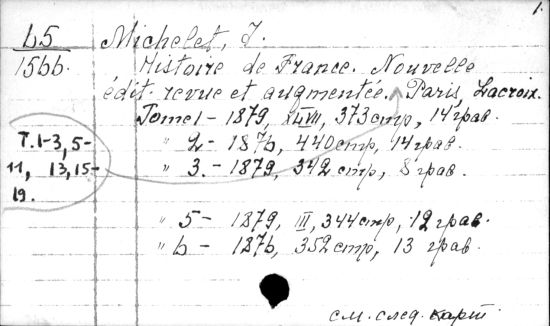 1.
45 Michelet, J.
1566. Histoire de France. Nouvelle
édit. revue et augmentée. Paris, Lacroix.
Tome 1 - 1879, XLVII, 373 стр, 14 грав.
" 2 - 1876, 440 стр, 14 грав.
" 3. - 1879, 342 стр, 8 грав.
Т. 1-3, 5-
11, 13, 15-
19.
" 5 - 1879, III, 344 стр, 12 грав.
" 6 - 1876, 352 стр, 13 грав.
см. след. карт